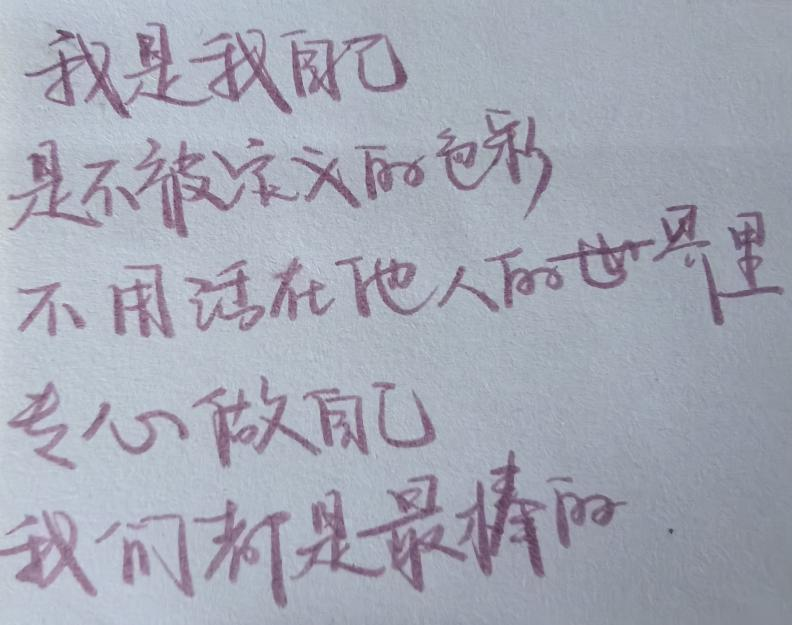 我是我自己
是不被定义的色彩
不用活在他人的世界里
专心做自己
我们都是最棒的